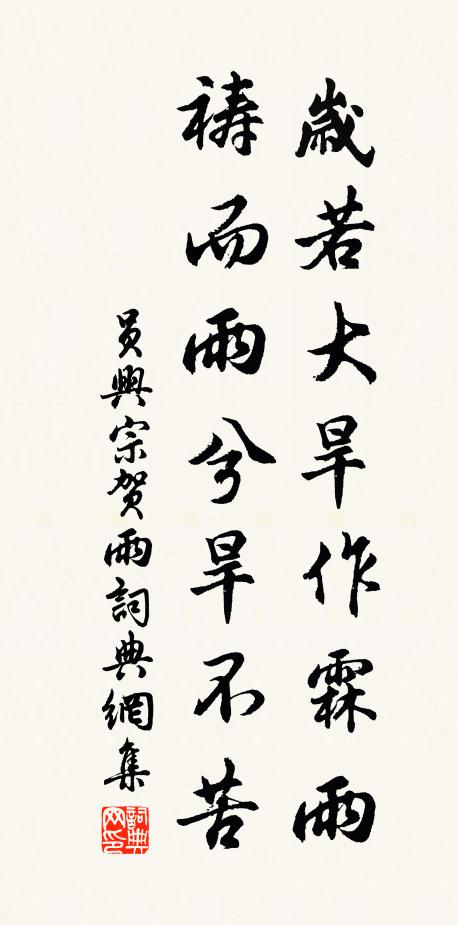 歲若大旱作霖雨
禱而雨兮旱不苦
員興宗賀雨詞典網集
詞典網印